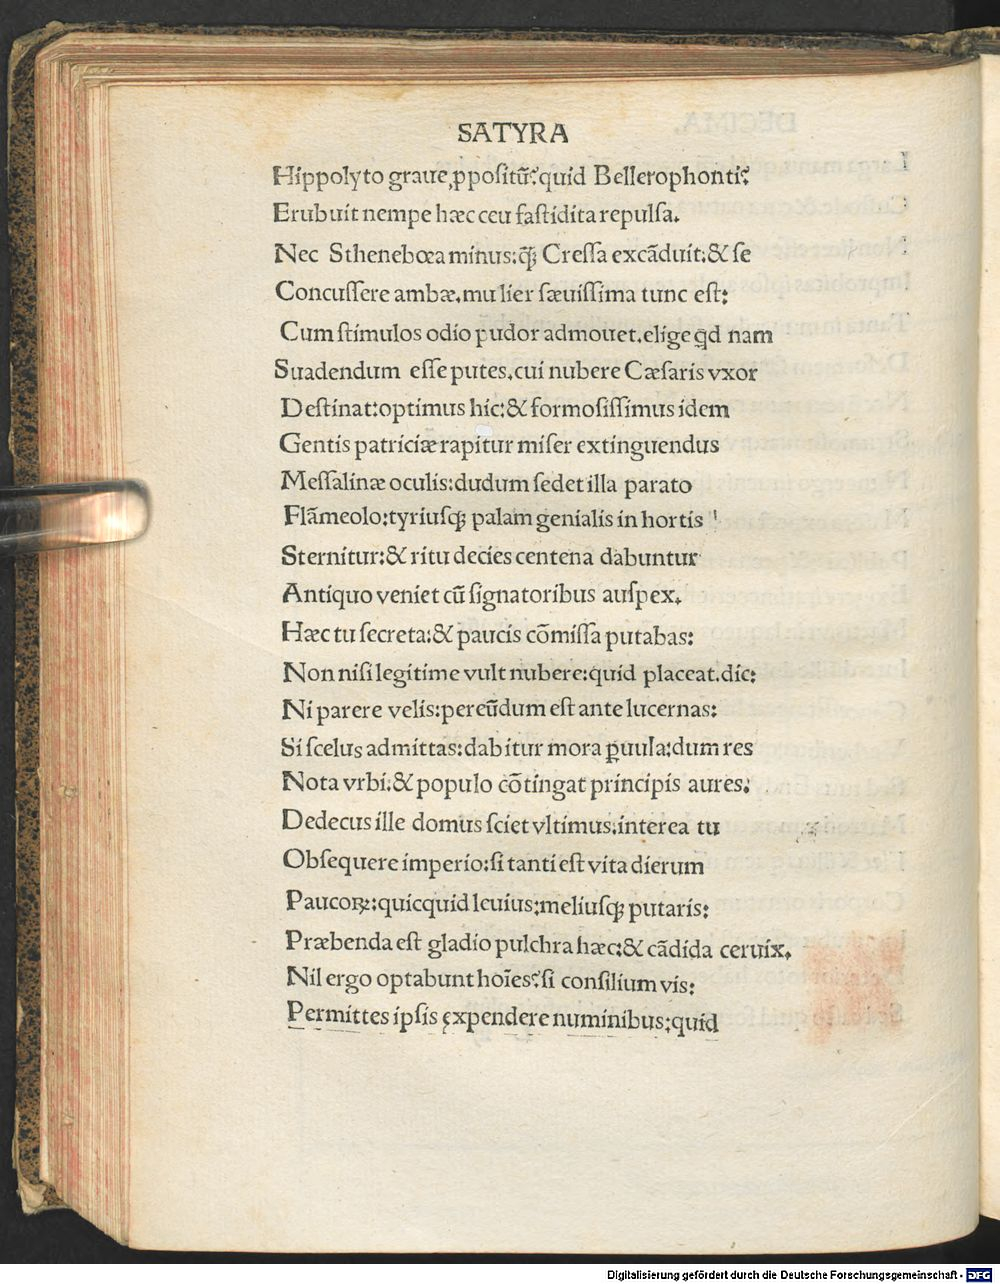 SATYRA
Hippolyto graue ꝓpositū? quid Bellerophonti?
Erubuit nempe hæc ceu fastidita repulsa.
Nec Sthenebœa minus: q̃ꝫ Cressa excāduit: & se
Concussere ambæ. mulier sæuissima tunc est:
Cum stimulos odio pudor admouet. elige qd nam
Suadendum esse putes. cui nubere Cæsaris vxor
Destinat: optimus hic: & formosissimus idem
Gentis patriciæ rapitur miser extinguendus
Messalinæ oculis: dudum sedet illa parato
Flāmeolo: tyriusqꝫ palam genialis in hortis
Sternitur: & ritu decies centena dabuntur
Antiquo veniet cū signatoribus auspex.
Hæc tu secreta: & paucis cōmissa putabas:
Non nisi legitime vult nubere: quid placeat. dic:
Ni parere velis: pereūdum est ante lucernas:
Si scelus admittas: dabitur mora ꝑuula: dum res
Nota vrbi: & populo cōtingat principis aures.
Dedecus ille domus sciet vltimus. interea tu
Obsequere imperio: si tanti est vita dierum
Paucoꝝ: quicquid leuius: meliusqꝫ putaris:
Præbenda est gladio pulchra hæc: & cādida ceruix.
Nil ergo optabunt hoīes? si consilium vis:
Permittes ipsis expendere numinibus: quid
Digitalisierung gefördert durch die Deutsche Forschungsgemeinschaft - DFG